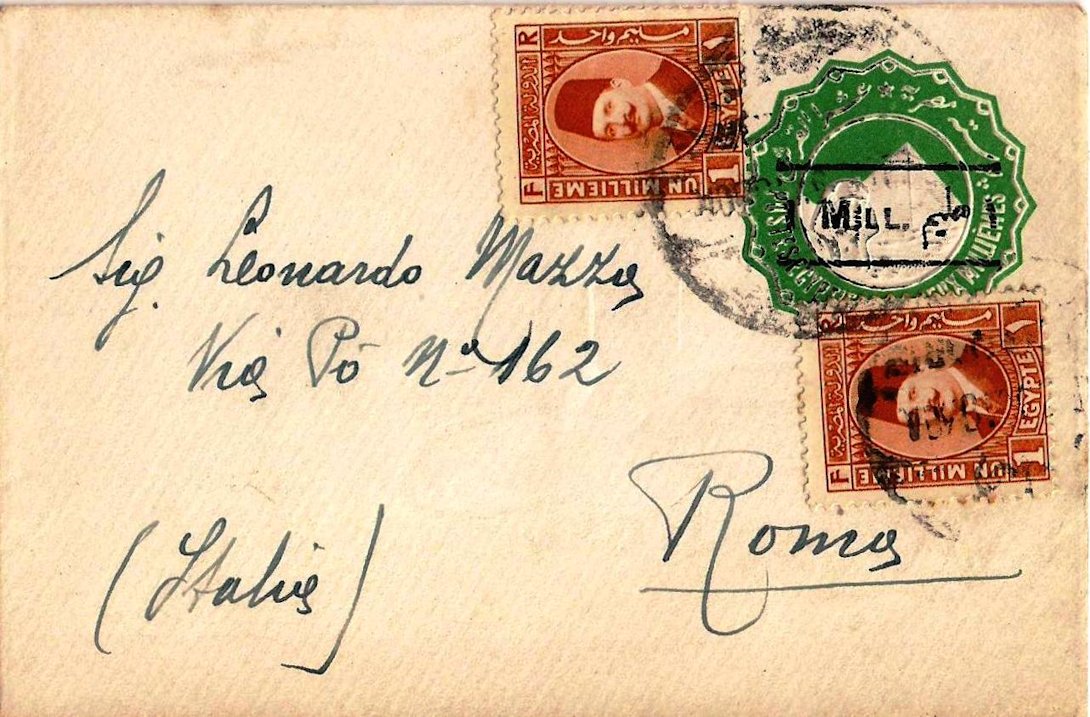 مليم واحد
الدولة المصرية
F R
EGYPTE
1
UN MILLIEME
MILL.
Sig. Leonardo Mazza
Via Pò Nº 162
Roma
(Italia)
مليم واحد
الدولة المصرية
F R
EGYPTE
1
UN MILLIEME